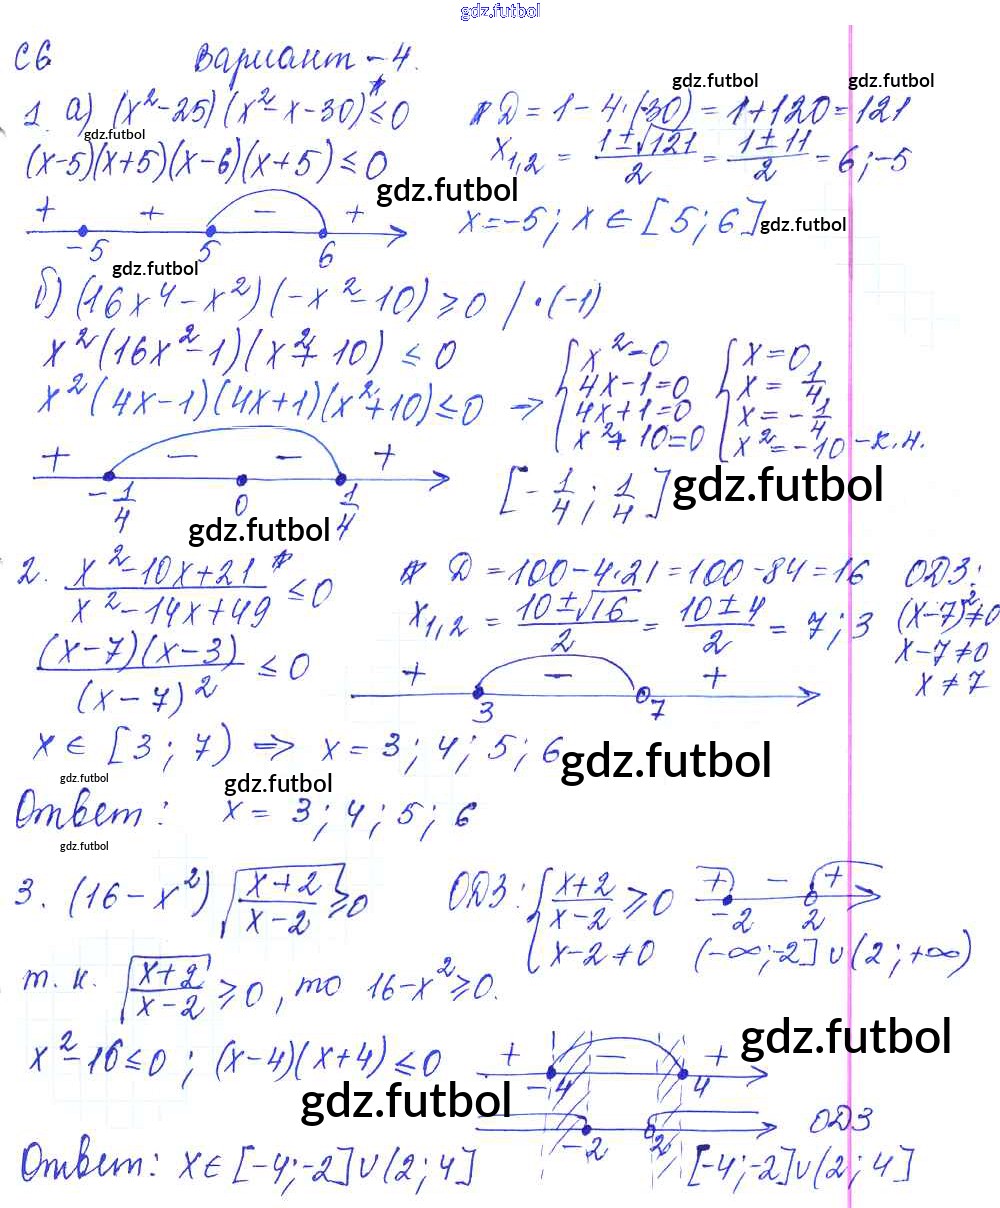 gdz.futbol
С6 Вариант – 4.
1. а) (x² – 25)(x² – x – 30)* ≤ 0 * Д = 1 – 4·(-30) = 1 + 120 = 121
gdz.futbol gdz.futbol
gdz.futbol
(x-5)(x+5)(x-6)(x+5) ≤ 0 x₁,₂ = (1±√121)/2 = (1±11)/2 = 6; -5
gdz.futbol
+ + – + x = -5; x ∈ [5; 6] gdz.futbol
-5 5 6
gdz.futbol
б) (16x⁴ – x²)(-x² – 10) ≥ 0 / ·(-1)
x²(16x² – 1)(x² + 10) ≤ 0 { x² = 0 { x = 0
4x – 1 = 0 x = 1/4
x²(4x – 1)(4x + 1)(x² + 10) ≤ 0 ⇒ 4x + 1 = 0 x = -1/4
x² + 10 = 0 x² = -10 – к.н.
+ – – + [-1/4; 1/4] gdz.futbol
-1/4 0 1/4
gdz.futbol
2. (x² – 10x + 21)*/(x² – 14x + 49) ≤ 0 * Д = 100 – 4·21 = 100 – 84 = 16 ОДЗ:
x₁,₂ = (10±√16)/2 = (10±4)/2 = 7; 3 (x-7)² ≠ 0
(x-7)(x-3)/(x-7)² ≤ 0 x – 7 ≠ 0
+ – + x ≠ 7
3 7
x ∈ [3; 7) ⇒ x = 3; 4; 5; 6 gdz.futbol
gdz.futbol gdz.futbol
Ответ: x = 3; 4; 5; 6
gdz.futbol
3. (16 – x²)√((x+2)/(x-2)) ≥ 0 ОДЗ: { (x+2)/(x-2) ≥ 0 + – +
-2 2
x – 2 ≠ 0 (-∞; -2] ∪ (2; +∞)
т.к. √((x+2)/(x-2)) ≥ 0, то 16 – x² ≥ 0.
gdz.futbol
x² – 16 ≤ 0; (x-4)(x+4) ≤ 0 + – +
-4 4
gdz.futbol
ОДЗ
-2 2
Ответ: x ∈ [-4; -2] ∪ (2; 4] [-4; -2] ∪ (2; 4]